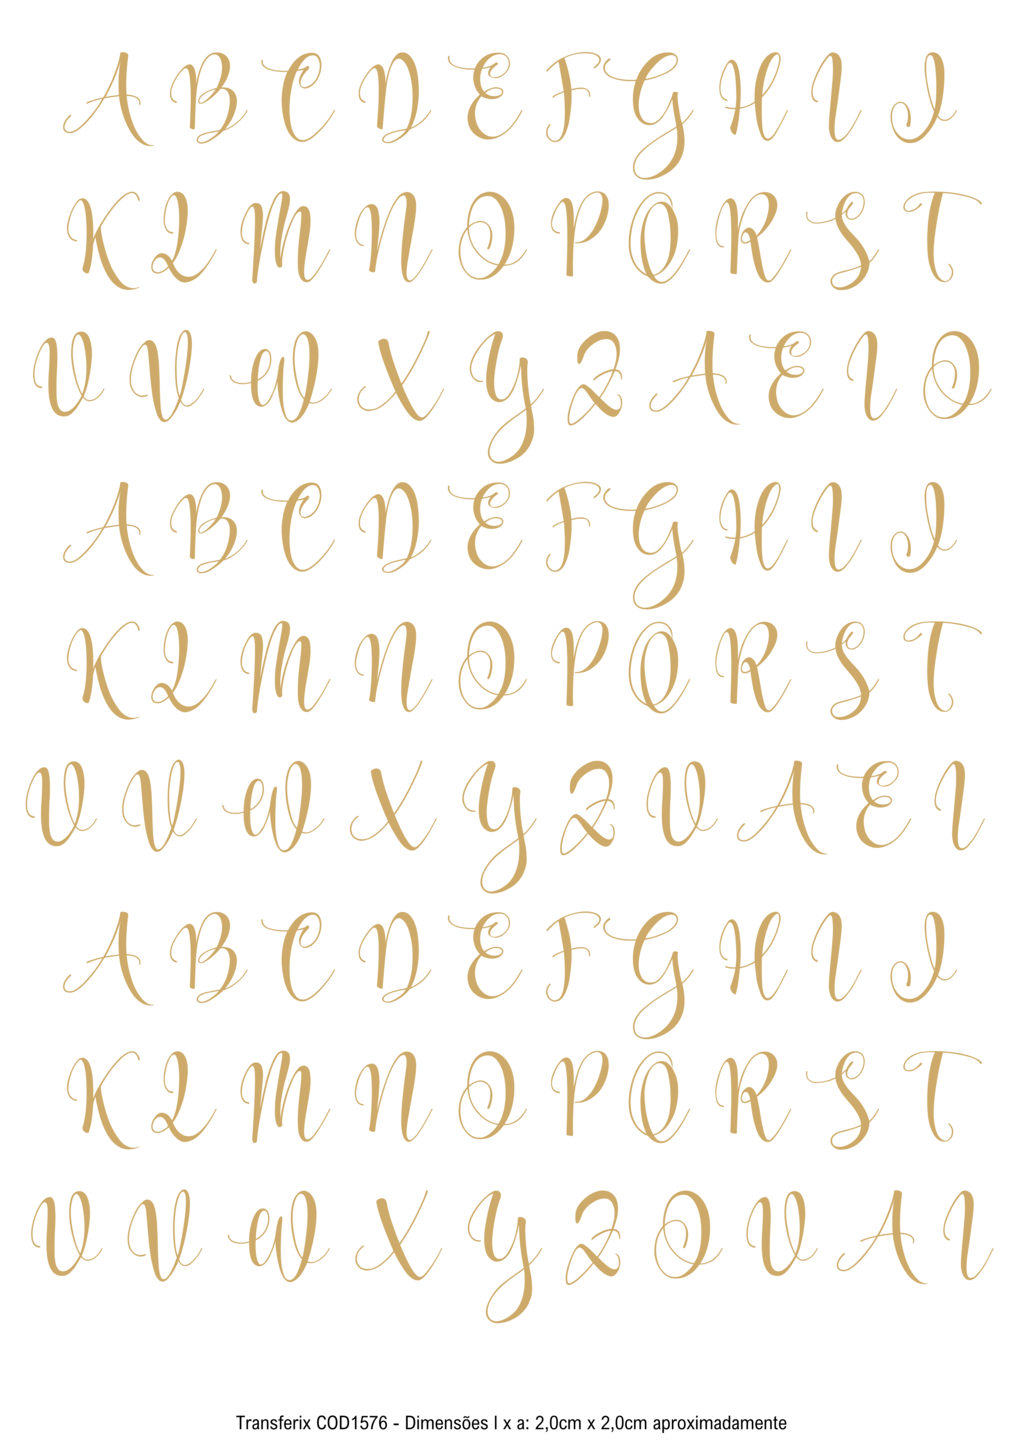 A B C D E F G H I J
K L M N O P Q R S T
U V W X Y Z A E I O
A B C D E F G H I J
K L M N O P Q R S T
U V W X Y Z U A E I
A B C D E F G H I J
K L M N O P Q R S T
U V W X Y Z O U A I
Transferix COD1576 - Dimensões l x a: 2,0cm x 2,0cm aproximadamente